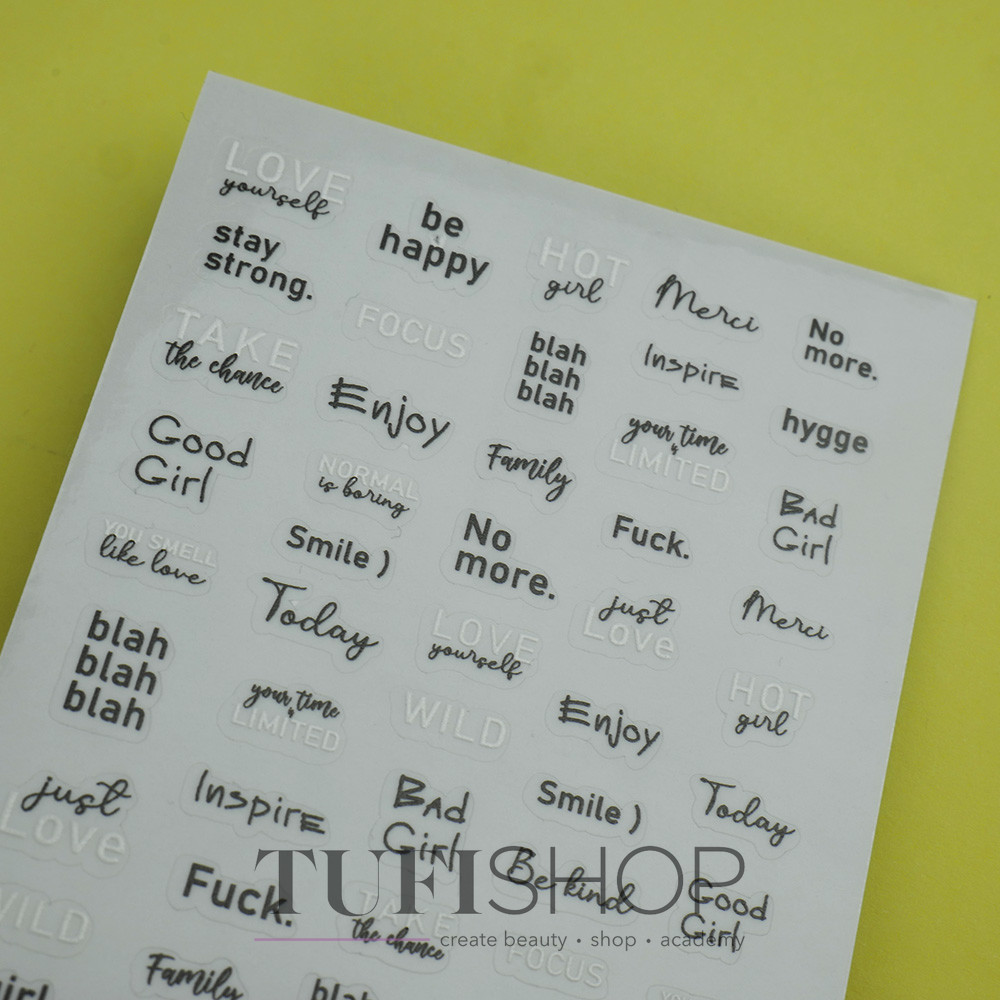 LOVE
yourself
be
happy
HOT
girl
Merci
No
more.
stay
strong.
FOCUS
blah
blah
blah
Inspire
hygge
TAKE
the chance
Enjoy
Family
your time
is
LIMITED
Bad
Girl
Good
Girl
NORMAL
is boring
No
more.
Fuck.
Merci
YOU SMELL
like love
Smile )
Today
LOVE
yourself
just
Love
HOT
girl
blah
blah
blah
your time
is
LIMITED
WILD
Enjoy
Today
just
Love
Inspire
Bad
Girl
Smile )
Good
Girl
WILD
Fuck.
TAKE
the chance
Be kind
FOCUS
girl
Family
blah
TUFISHOP
create beauty • shop • academy